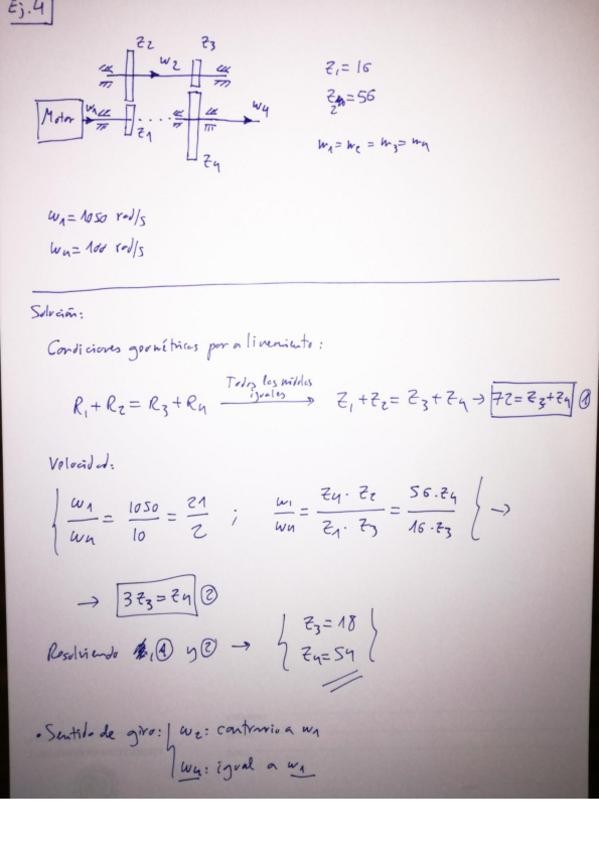 Ej. 4
Z2 Z3
w2
Motor w1 w4
Z1
Z4
Z1 = 16
Z2 = 56
m1 = m2 = m3 = m4
w1 = 1050 rad/s
w4 = 100 rad/s
Solución:
Condiciones geométricas por alineamiento:
R1 + R2 = R3 + R4 Todos los módulos iguales → Z1 + Z2 = Z3 + Z4 → 72 = Z3 + Z4 ①
Velocidad:
{ w1/w4 = 1050/10 = 21/2 ; w1/w4 = Z4 · Z2 / Z1 · Z3 = 56 · Z4 / 16 · Z3 } →
→ 3Z3 = Z4 ②
Resolviendo ① y ② → { Z3 = 18
Z4 = 54 }
• Sentido de giro: { w2: contrario a w1
w4: igual a w1